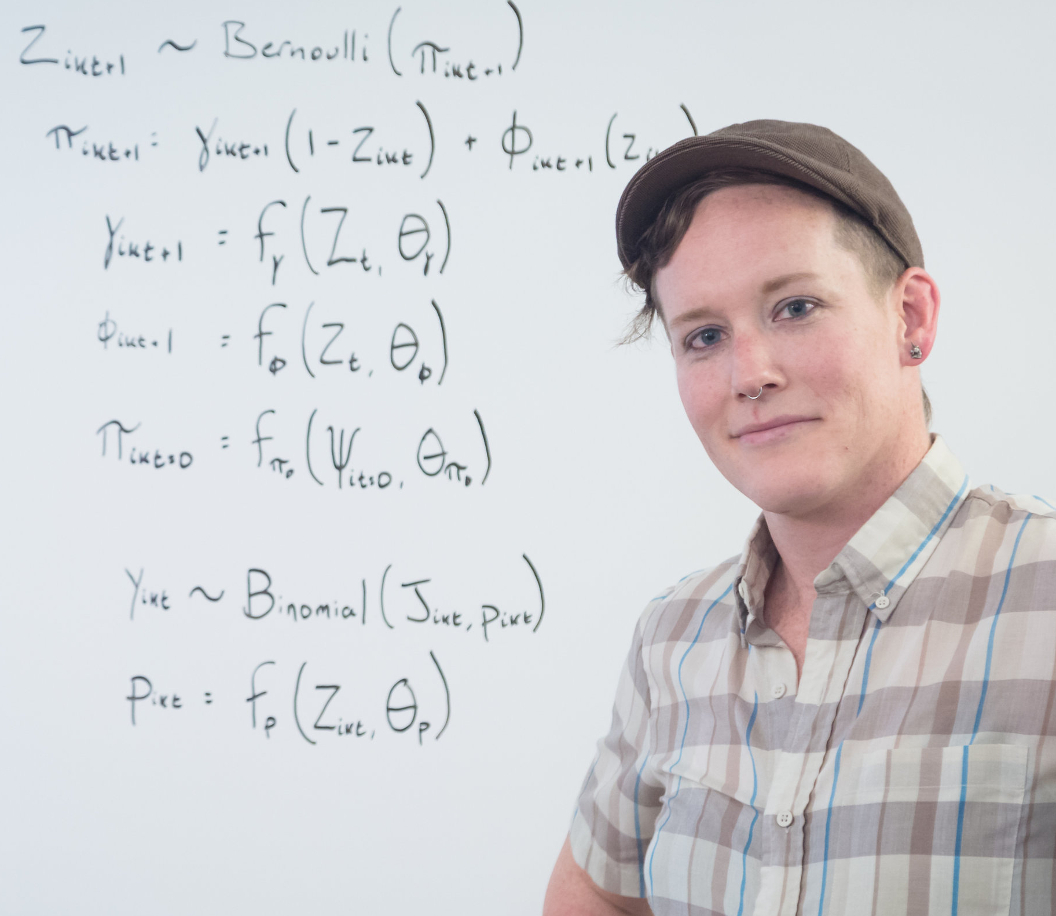 Z_{ikt+1} ~ Bernoulli (π_{ikt+1})
π_{ikt+1} = γ_{ikt+1} (1 - Z_{ikt}) + φ_{ikt+1} (Z_{i
γ_{ikt+1} = f_γ (Z_t, θ_γ)
φ_{ikt+1} = f_φ (Z_t, θ_φ)
π_{ikt=0} = f_{π_0} (ψ_{it=0}, θ_{π_0})
y_{ikt} ~ Binomial (J_{ikt}, p_{ikt})
p_{ikt} = f_p (Z_{ikt}, θ_p)